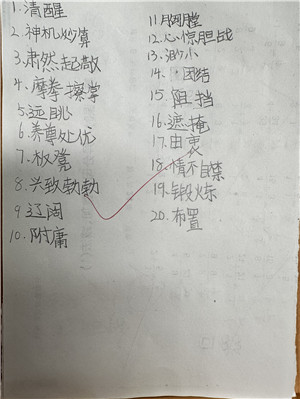 1.清醒
2.神机妙算
3.肃然起敬
4.摩拳擦掌
5.远眺
6.养尊处优
7.板凳
8.兴致勃勃
9.辽阔
10.附庸
11.胸膛
12.心惊胆战
13.渺小
14.团结
15.阻挡
16.遮掩
17.由衷
18.情不自禁
19.锻炼
20.布置